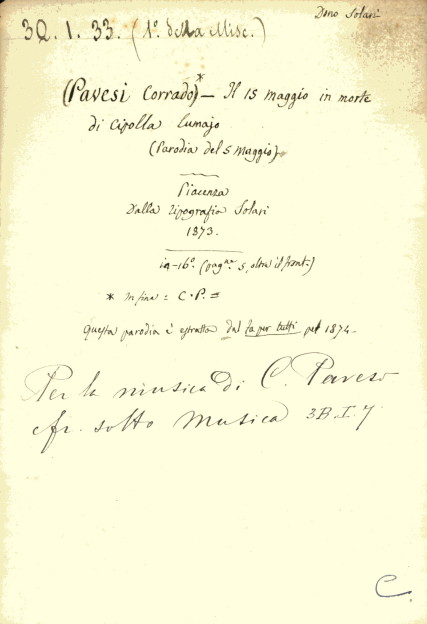 Dono Solari
3Q. 1. 33. (1º. della Misc.)
(Pavesi Corrado)* — Il 15 maggio in morte
di Cipolla lumajo
(Parodia del 5 maggio)
Piacenza
Dalla Tipografia Solari
1873.
in-16º. (pagne. 5, oltre il front.)
* In fine = C. P. =
Questa parodia è estratta dal fa per tutti pel 1874.
Per la musica di C. Pavesi
cfr. sotto Musica 3B.I.7
C.